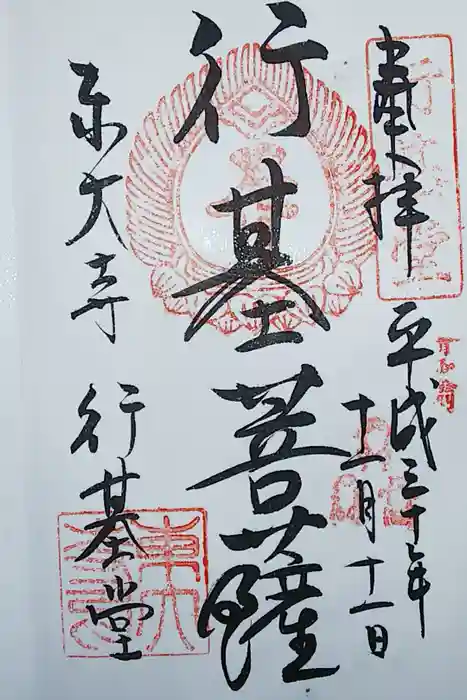 奉拝
平成三十年
十一月十一日
行基菩薩
東大寺
行基堂